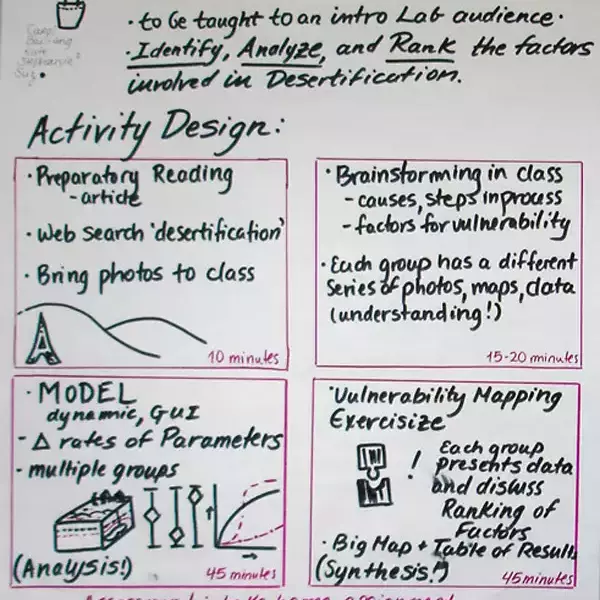 · to be taught to an intro Lab audience.
· Identify, Analyze, and Rank the factors
involved in Desertification.
Activity Design:
· Preparatory Reading
- article
· Web search 'desertification'
· Bring photos to class
10 minutes
· Brainstorming in class
- causes, steps in process
- factors for vulnerability
· Each group has a different
series of photos, maps, data
(understanding!)
15-20 minutes
· MODEL
dynamic, GUI
- Δ rates of Parameters
- multiple groups
(Analysis!)
45 minutes
· Vulnerability Mapping
Exercisize
! Each group
presents data
and discuss
Ranking of
Factors
· Big Map + Table of Results
(Synthesis!)
45 minutes